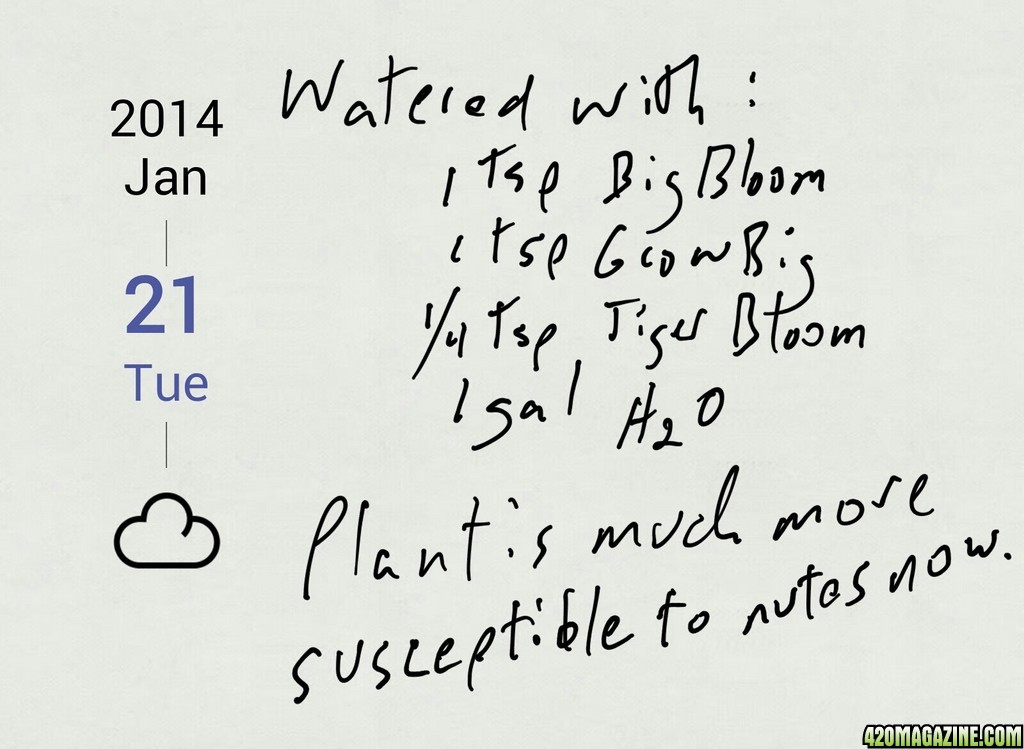 2014
Jan
21
Tue
Watered with:
1 tsp Big Bloom
1 tsp Grow Big
1/4 tsp Tiger Bloom
1 gal H2O
Plant is much more
susceptible to nutes now.
420MAGAZINE.COM